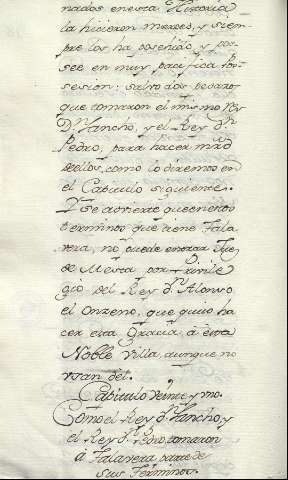 nados en esta Historia
la hicieron merced, y siem-
pre los ha poseido, y pos-
see en muy pacifica Pos-
sesion: salvo dos pedazos
que tomaron el mismo Rey
Dn. Sancho, y el Rey Dn.
Pedro, para hacer mrd
de ellos, como lo diremos en
el Capitulo siguiente.
Y se advierte que en estos
terminos que tiene Tala
vera, no puede entrar
de Mesta por Privile
gio del Rey Dn. Alonso
el Onzeno, que quiso ha
cer esta Gracia à esta
Noble Villa, aunque no
usan del.
Capitulo veinte y uno.
Como el Rey Dn. Sancho, y
el Rey Dn. Pedro tomaron
à Talavera parte de
sus Terminos.